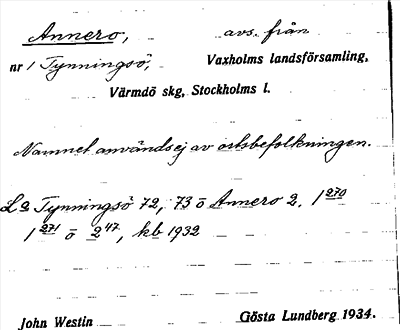 Annero, avs. från
nr 1 Tynningsö, Vaxholms landsförsamling,
Värmdö skg, Stockholms l.
Namnet användsej av ortsbefolkningen.
Lg Tynningsö 72, 73 o Annero 2. 1 270
1 271 o 2 47, kb 1932
John Westin Gösta Lundberg 1934.